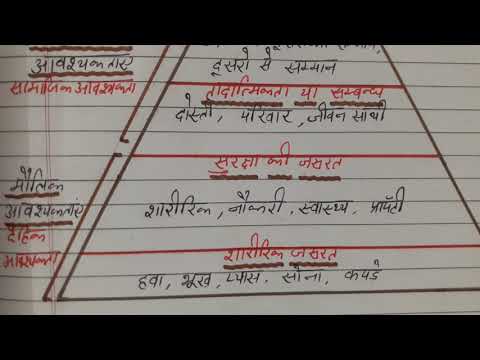 आवश्यकताएं
दूसरो से सम्मान
सामाजिक आवश्यकता
तादात्मिकता या सम्बन्ध
दोस्ती, परिवार, जीवन साथी
सुरक्षा की जरूरत
मौलिक
आवश्यकताएं
शारीरिक, नौकरी, स्वास्थ्य, प्रॉपर्टी
दैहिक
आवश्यकता
शारीरिक जरूरत
हवा, भूख, प्यास, सोना, कपडे